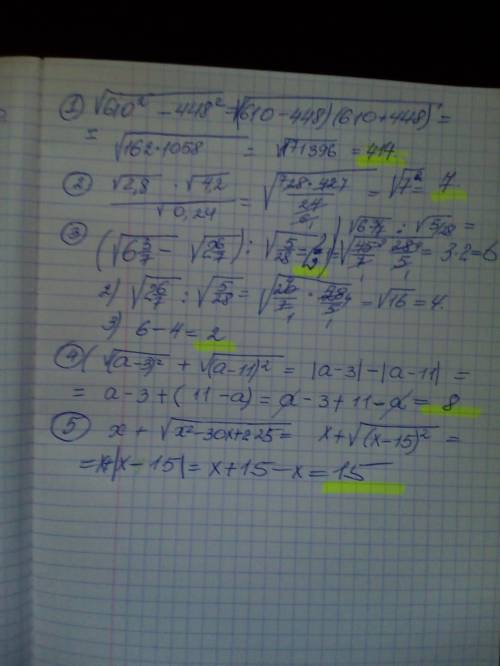 ① √610² − 448² = √(610−448)(610+448) =
= √162·1058 = √171396 = 414.
② √2,8 · √42 / √0,24 = √728·427 / 24 = √7² = 7
③ (√6 3/7 − √26/7) : √5/28 = 1) √6 3/7 : √5/28 =
= √45/7 · 28/5 = 3·2 = 6
2) √26/7 : √5/28 = √20/7 · 28/5 = √16 = 4.
3) 6−4 = 2
④ (√(a−3)² + √(a−11)² = |a−3| − |a−11| =
= a−3+(11−a) = a−3+11−a = 8
⑤ x + √x²−30x+225 = x+√(x−15)² =
= x+|x−15| = x+15−x = 15